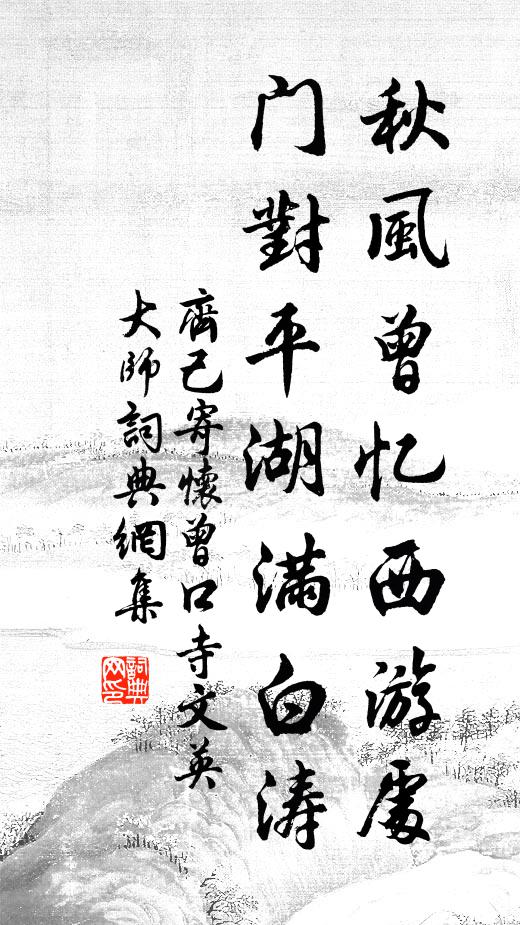 秋風曾忆西游處
门對平湖满白涛
齊己寄懷曾口寺文英
大師詞典網集
詞典网印